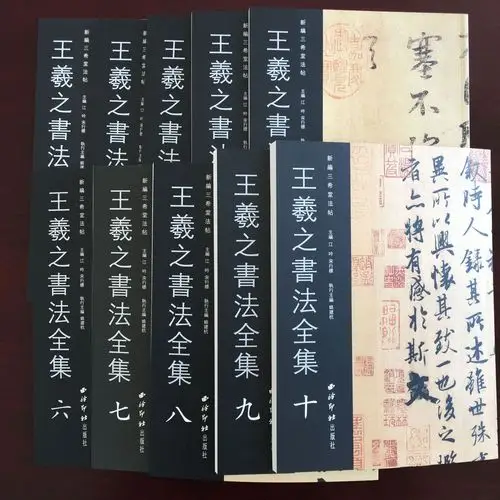 王羲之書法
王羲之書法
王羲之書法
新編三希堂法帖
王羲之書法
新編三希堂法帖
王羲之書法
新編三希堂法帖
主編 江吟 金行標
塞不
王羲之書法全集 六
新編三希堂法帖
西泠印社出版社
王羲之書法全集 七
新編三希堂法帖
主編 江吟 金行標
執行主編 姚建杭
西泠印社出版社
王羲之書法全集 八
新編三希堂法帖
主編 江吟 金行標
執行主編 姚建杭
西泠印社出版社
王羲之書法全集 九
新編三希堂法帖
主編 江吟 金行標
執行主編 姚建杭
西泠印社出版社
王羲之書法全集 十
新編三希堂法帖
主編 江吟 金行標
執行主編 姚建杭
西泠印社出版社
叙時人錄其所述雖世殊
異所以興懷其致一也後之
者亦將有感於斯文